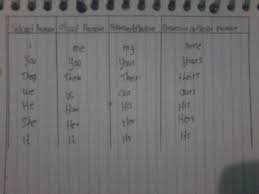 Pronoun Pronoun
I me my mine
You You Your Yours
They Them Their theirs
We us our ours
He Him His His
She Her Her Hers
It It Its Its